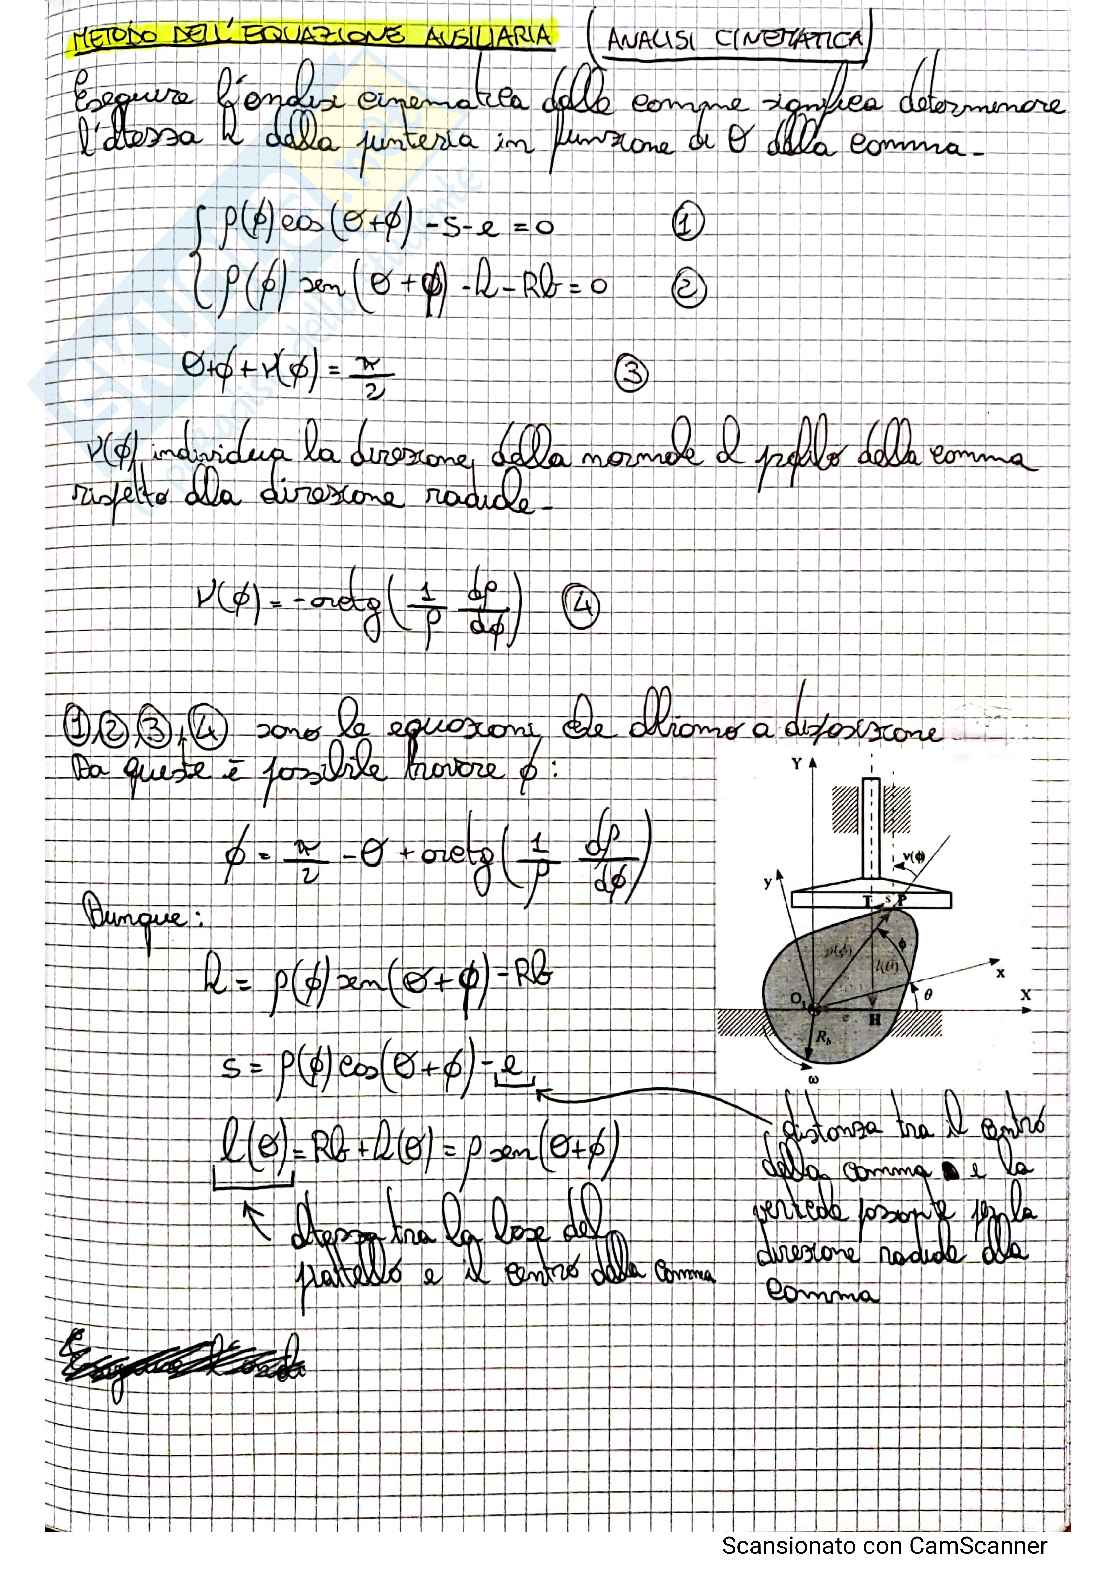 METODO DELL'EQUAZIONE AUSILIARIA (ANALISI CINEMATICA)
Eseguire l'analisi cinematica delle camme significa determinare
l'altezza h della punteria in funzione di θ della camma.
ρ(ϕ)cos(θ+ϕ) - s - e = 0 ①
ρ(ϕ) sen(θ+ϕ) - h - Rb = 0 ②
θ+ϕ+ν(ϕ) = π/2 ③
ν(ϕ) individua la direzione della normale al profilo della camma
rispetto alla direzione radiale.
ν(ϕ) = -arctg(1/ρ dρ/dϕ) ④
①,②,③,④ sono le equazioni che abbiamo a disposizione
Da queste è possibile trovare ϕ:
ϕ = π/2 - θ + arctg(1/ρ dρ/dϕ)
Dunque:
h = ρ(ϕ) sen(θ+ϕ) - Rb
s = ρ(ϕ)cos(θ+ϕ) - e
l(θ) = Rb + h(θ) = ρ sen(θ+ϕ)
altezza tra la base del
piattello e il centro della camma
distanza tra il centro
della camma e la
verticale passante per la
direzione radiale alla
camma
Y
ν(ϕ)
y
T s P
ϕ
x
X
θ
O₁
e
H
R_b
ω
Scansionato con CamScanner